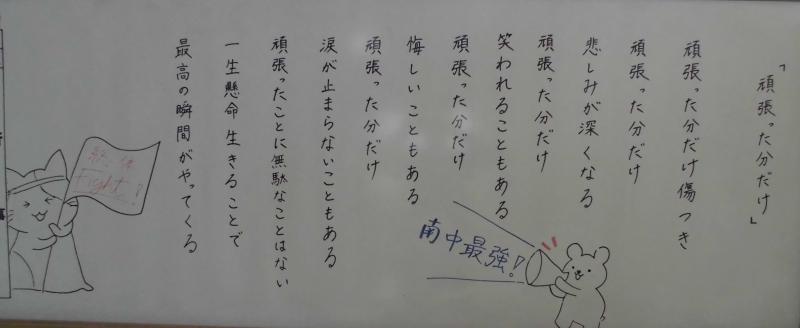 「頑張った分だけ」
頑張った分だけ傷つき
頑張った分だけ
悲しみが深くなる
頑張った分だけ
笑われることもある
頑張った分だけ
悔しいこともある
頑張った分だけ
涙が止まらないこともある
頑張ったことに無駄なことはない
一生懸命生きることで
最高の瞬間がやってくる
南中最強!
Fight!